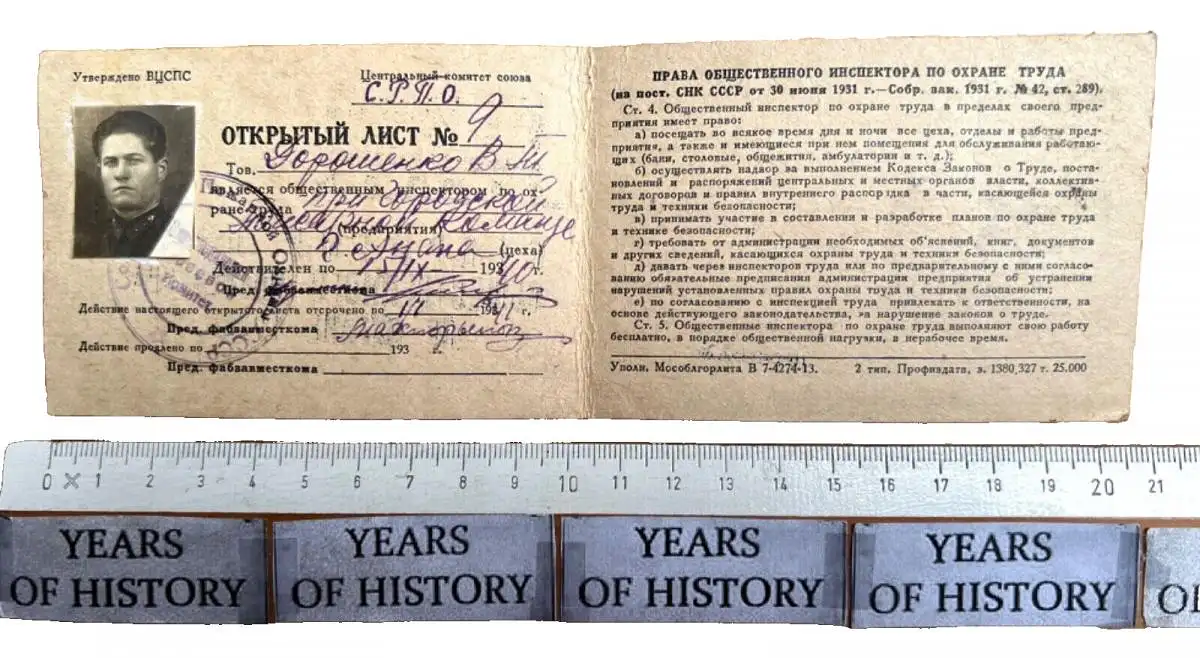 Утверждено ВЦСПС
Центральный комитет союза
С.Р.П.О.
ОТКРЫТЫЙ ЛИСТ № 9
Тов. Дорошенко В.М.
является общественным инспектором по ох-
ране труда при городской
пожарной команде
(предприятия)
(цеха)
Действителен по 15/IX 1940 г.
Пред. фабзавместкома
Действие настоящего открытого листа отсрочено по 193 г.
Пред. фабзавместкома
Действие продлено по 193 г.
Пред. фабзавместкома
ПРАВА ОБЩЕСТВЕННОГО ИНСПЕКТОРА ПО ОХРАНЕ ТРУДА
(из пост. СНК СССР от 30 июня 1931 г.—Собр. зак. 1931 г. № 42, ст. 289).
Ст. 4. Общественный инспектор по охране труда в пределах своего пред-
приятия имеет право:
а) посещать во всякое время дня и ночи все цеха, отделы и работы пред-
приятия, а также и имеющиеся при нем помещения для обслуживания работаю-
щих (баки, столовые, общежития, амбулатории и т. д.);
б) осуществлять надзор за выполнением Кодекса Законов о Труде, поста-
новлений и распоряжений центральных и местных органов власти, коллектив-
ных договоров и правил внутреннего распорядка в части, касающейся охраны
труда и техники безопасности;
в) принимать участие в составлении и разработке планов по охране труда
и технике безопасности;
г) требовать от администрации необходимых об'яснений, книг, документов
и других сведений, касающихся охраны труда и техники безопасности;
д) давать через инспекторов труда или по предварительному с ними согласо-
ванию обязательные предписания администрации предприятия об устранении
нарушений установленных правил охраны труда и техники безопасности;
е) по согласованию с инспекцией труда привлекать к ответственности, на
основе действующего законодательства, за нарушение законов о труде.
Ст. 5. Общественные инспектора по охране труда выполняют свою работу
бесплатно, в порядке общественной нагрузки, в нерабочее время.
Уполн. Мособлгорлита В 7-4274-13. 2 тип. Профиздата, з. 1380,327 т. 25.000
0 1 2 3 4 5 6 7 8 9 10 11 12 13 14 15 16 17 18 19 20 21
YEARS OF HISTORY
YEARS OF HISTORY
YEARS OF HISTORY
YEARS OF HISTORY